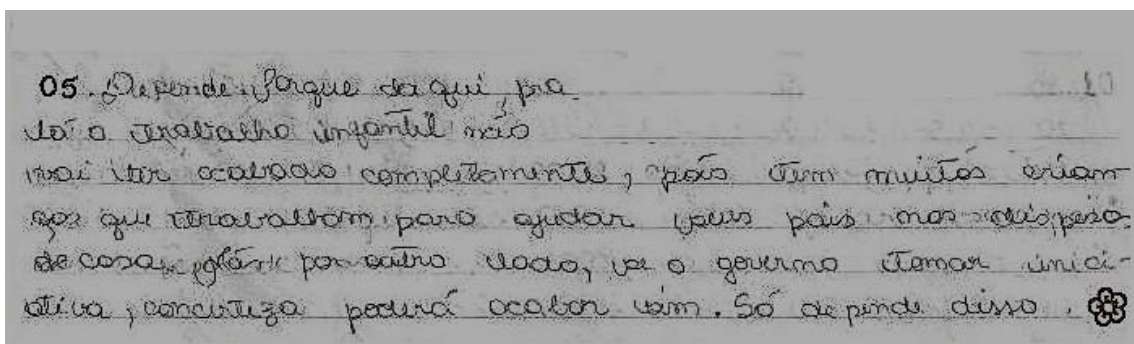 05. Depende. Porque da qui pra
lá o trabalho infantil não
vai ter acabado completamente, pois tem muitas crian
ças que trabalham para ajudar seus pais nas despesa
de casa, por outro lado, se o governo tomar inici-
ativa, concerteza poderá acabar sim. Só depende disso.